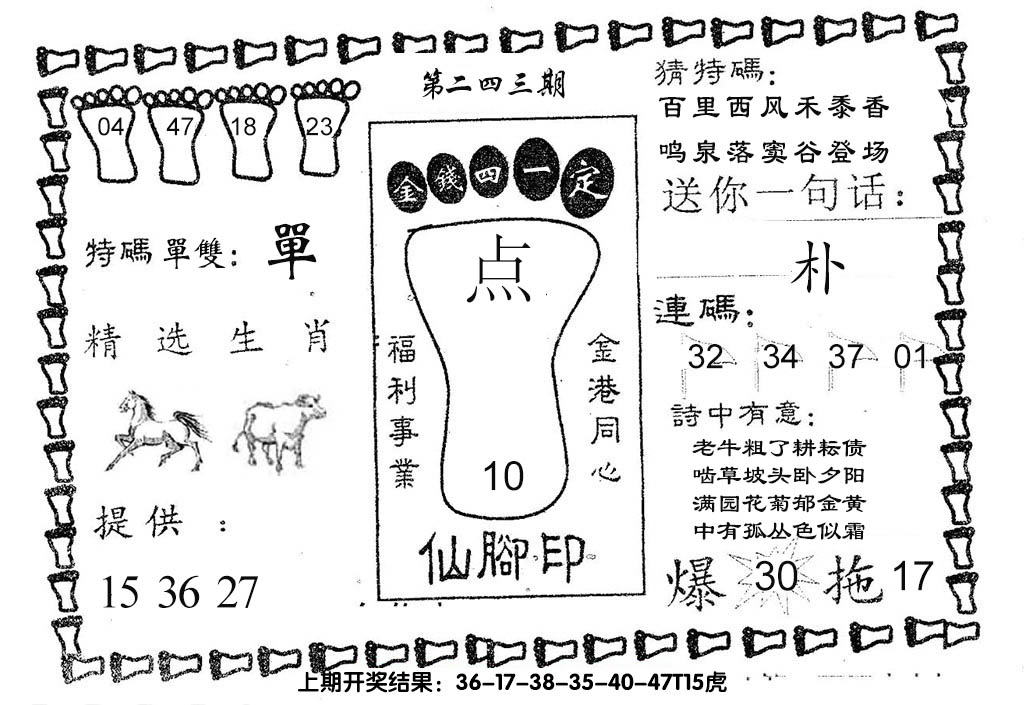 第二四三期
04 47 18 23
特碼單雙：單
精选生肖
提供：
15 36 27
金錢四一定
点
福利事業
金港同心
10
仙腳印
猜特碼：
百里西风禾黍香
鸣泉落窦谷登场
送你一句话：
朴
連碼：
32 34 37 01
詩中有意：
老牛粗了耕耘债
啮草坡头卧夕阳
满园花菊郁金黄
中有孤丛色似霜
爆 30 拖 17
上期开奖结果：36-17-38-35-40-47T15虎